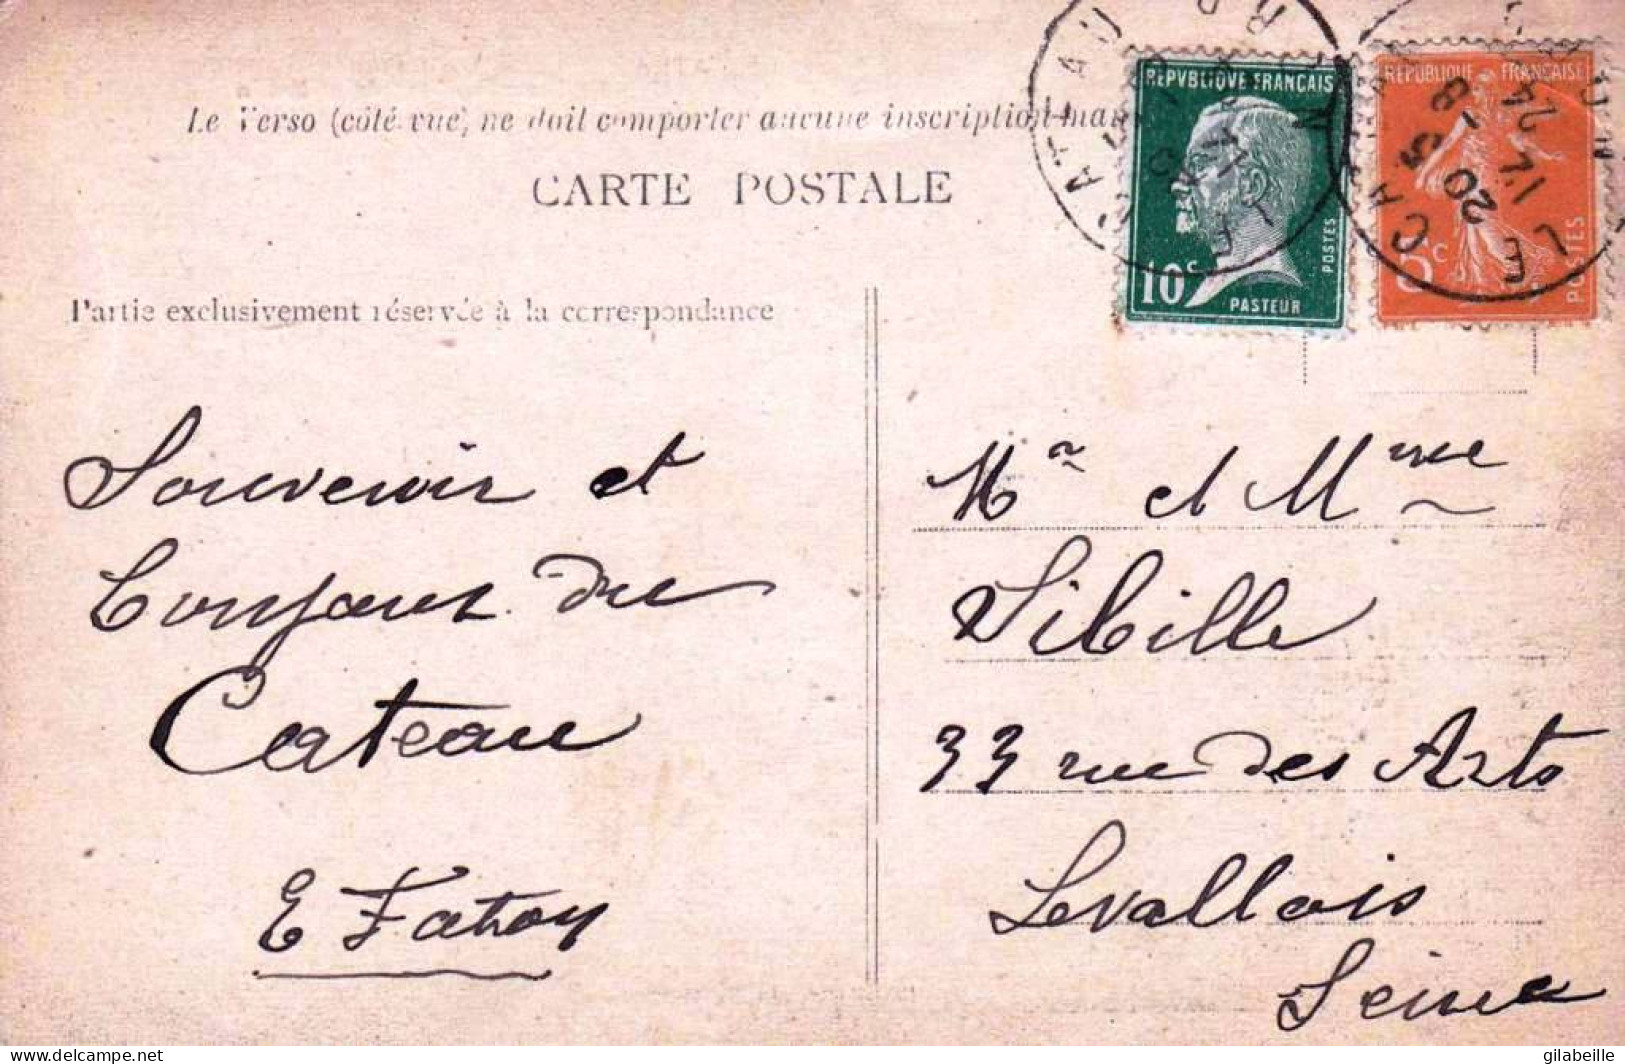 Le Verso (côté vue) ne doit comporter aucune inscription man
CARTE POSTALE
Partie exclusivement réservée à la correspondance
REPVBLIQUE FRANÇAISE
10c
PASTEUR
POSTES
REPUBLIQUE FRANÇAISE
5c
POSTES
LE CATEAU
NORD
18 5
20 12 24
Souvenir et
Bonjour du
Cateau
E Fatou
Mr et Mme
Sibille
33 rue des Arts
Levallois
Seine
delcampe.net
gilabeille